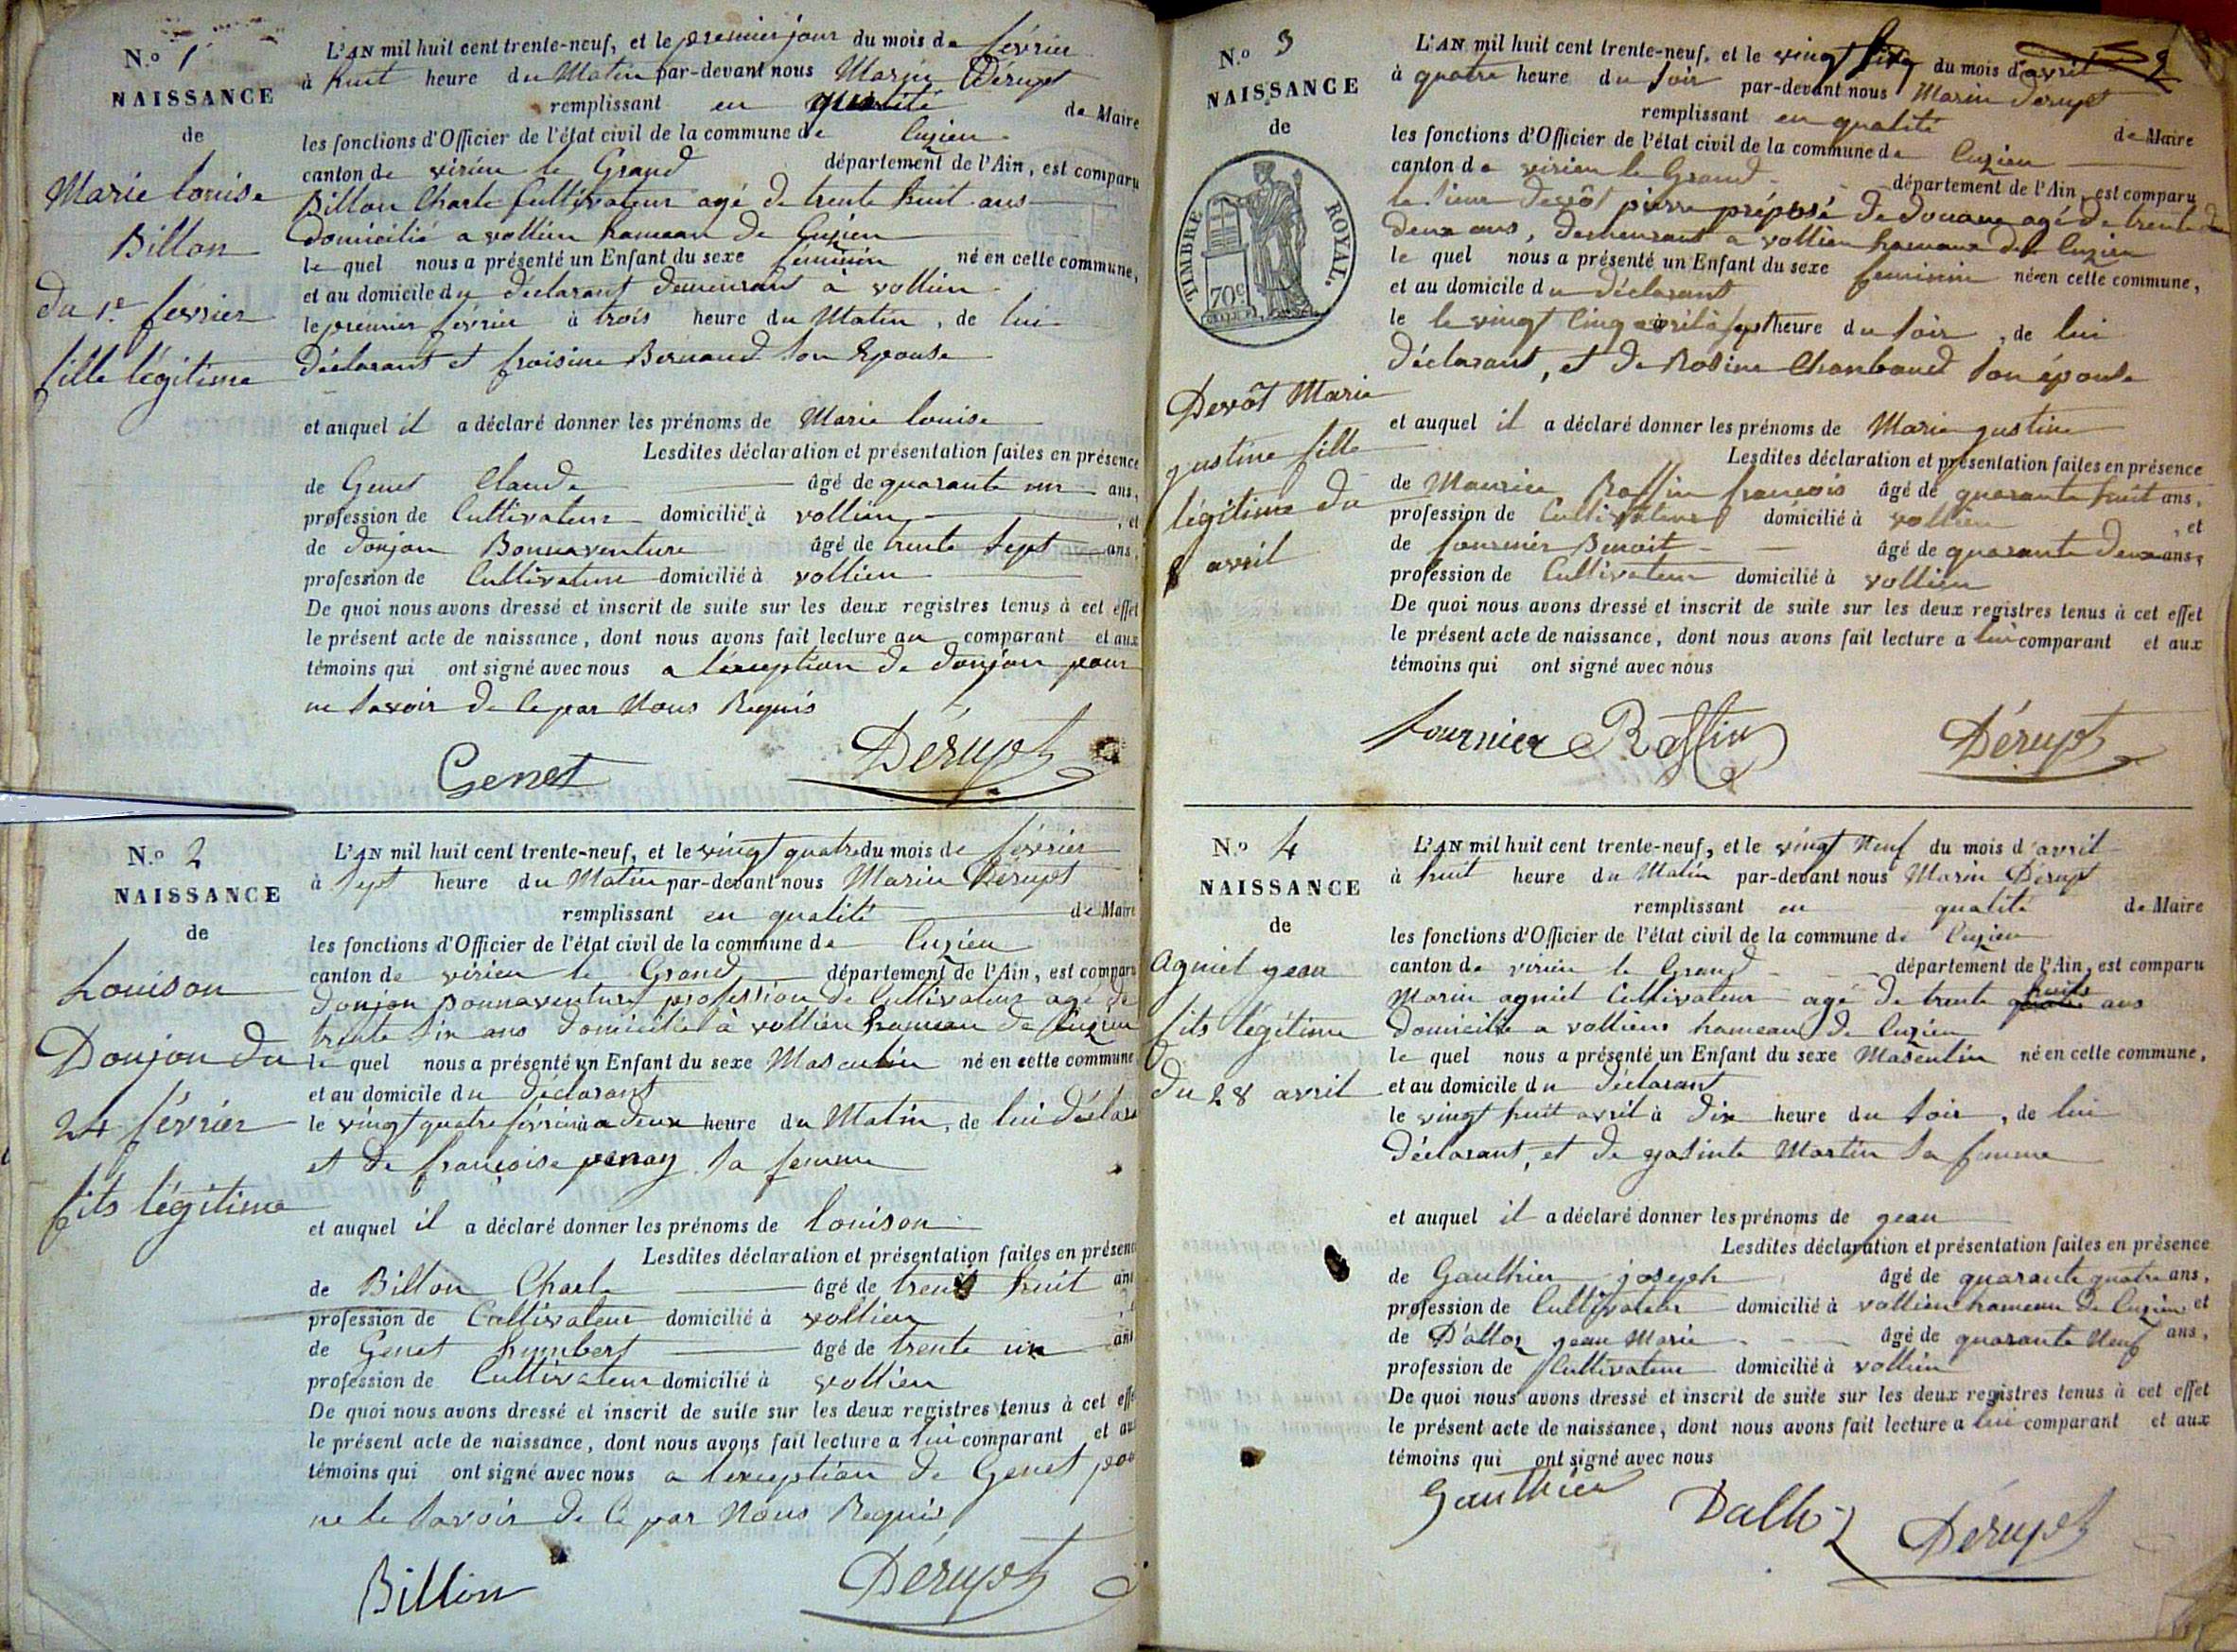 N.o 1
NAISSANCE
de
Marie louise
Billon
du 1.e février
fille légitime
L'AN mil huit cent trente-neuf, et le premier jour du mois de février
à huit heure du Matin par-devant nous Marin Dérupt
remplissant en qualité de Maire
les fonctions d'Officier de l'état civil de la commune de Cuzieu
canton de virieu le Grand département de l'Ain, est comparu
Billon Charle Cultivateur agé de trente huit ans
domicilié a vollien hameau de Cuzieu
le quel nous a présenté un Enfant du sexe feminin né en cette commune,
et au domicile du déclarant demeurant à vollien
le premier février à trois heure du Matin, de lui
déclarant et froisine Bernaud son Epouse
et auquel il a déclaré donner les prénoms de Marie louise
Lesdites déclaration et présentation faites en présence
de Genet Claude âgé de quarante un ans,
profession de Cultivateur domicilié à vollien , et
de donjon Bonnaventure âgé de trente sept ans,
profession de Cultivateur domicilié à vollien
De quoi nous avons dressé et inscrit de suite sur les deux registres tenus à cet effet
le présent acte de naissance, dont nous avons fait lecture au comparant et aux
témoins qui ont signé avec nous a l'exception de donjon pour
ne savoir de Ce par Nous Requis
Genet Dérupt
N.o 2
NAISSANCE
de
Louison
Donjon du
24 février
fils légitime
L'AN mil huit cent trente-neuf, et le vingt quatre du mois de février
à sept heure du Matin par-devant nous Marin Dérupt
remplissant en qualité de Maire
les fonctions d'Officier de l'état civil de la commune de Cuzieu
canton de virieu le Grand département de l'Ain, est comparu
donjon Bonnaventure profession de Cultivateur agé de
trente six ans domicilié à vollien hameau de Cuzieu
le quel nous a présenté un Enfant du sexe Masculin né en cette commune
et au domicile du déclarant
le vingt quatre février à deux heure du Matin, de lui déclara
et de françoise penay sa femme
et auquel il a déclaré donner les prénoms de louison
Lesdites déclaration et présentation faites en présence
de Billon Charle âgé de trente huit ans
profession de Cultivateur domicilié à vollien
de Genet humbert âgé de trente un ans
profession de Cultivateur domicilié à vollien
De quoi nous avons dressé et inscrit de suite sur les deux registres tenus à cet effe
le présent acte de naissance, dont nous avons fait lecture a lui comparant et aux
témoins qui ont signé avec nous a l'exception de Genet pou
ne le savoir de Ce par Nous Requis
Billon Dérupt
N.o 3
NAISSANCE
de
TIMBRE ROYAL.
70c
Devôt Marie
gustine fille
légitime du
avril
2
L'AN mil huit cent trente-neuf, et le vingt six du mois d'avril
à quatre heure du soir par-devant nous Marin Derupt
remplissant en qualité de Maire
les fonctions d'Officier de l'état civil de la commune de Cuzieu
canton de virieu le Grand département de l'Ain, est comparu
le sieur devôt pierre préposé de douane agé de trente
deux ans, demeurant a vollien hameau de Cuzieu
le quel nous a présenté un Enfant du sexe feminin né en cette commune,
et au domicile du déclarant
le le vingt Cinq avril à sept heure du soir, de lui
déclarant, et de Rosine Chambaud son épouse
et auquel il a déclaré donner les prénoms de Marie gustine
Lesdites déclaration et présentation faites en présence
de Maurice Raffin françois âgé de quarante huit ans,
profession de Cultivateur domicilié à vollien , et
de fournier Benoit âgé de quarante deux ans,
profession de Cultivateur domicilié à vollien
De quoi nous avons dressé et inscrit de suite sur les deux registres tenus à cet effet
le présent acte de naissance, dont nous avons fait lecture a lui comparant et aux
témoins qui ont signé avec nous
fournier Raffin Dérupt
N.o 4
NAISSANCE
de
Agniel gean
fils légitime
du 28 avril
L'AN mil huit cent trente-neuf, et le vingt Neuf du mois d'avril
à huit heure du Matin par-devant nous Marin Dérupt
remplissant en qualité de Maire
les fonctions d'Officier de l'état civil de la commune de Cuzieu
canton de virieu le Grand département de l'Ain, est comparu
Marin agniel Cultivateur agé de trente huit ans
domicilié a vollien hameau de Cuzieu
le quel nous a présenté un Enfant du sexe Masculin né en cette commune,
et au domicile du déclarant
le vingt huit avril à dix heure du soir, de lui
déclarant, et de gasinte Martin sa femme
et auquel il a déclaré donner les prénoms de gean
Lesdites déclaration et présentation faites en présence
de Gauthier joseph âgé de quarante quatre ans,
profession de Cultivateur domicilié à vollien hameau de Cuzieu et
de D'alloz gean Marie âgé de quarante Neuf ans,
profession de Cultivateur domicilié à vollien
De quoi nous avons dressé et inscrit de suite sur les deux registres tenus à cet effet
le présent acte de naissance, dont nous avons fait lecture a lui comparant et aux
témoins qui ont signé avec nous
Gauthier Dalloz Dérupt